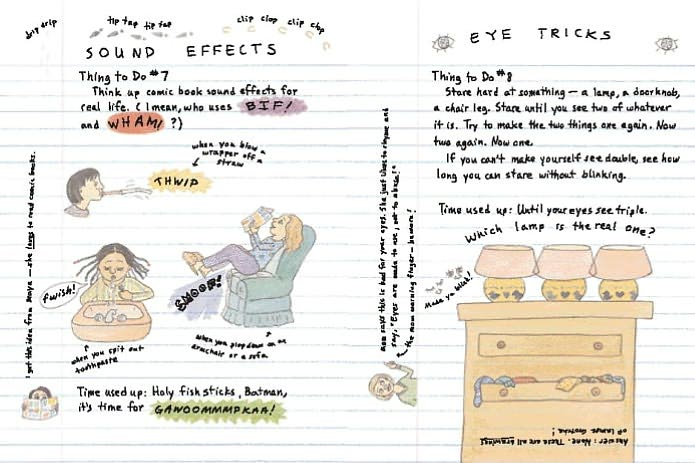 drip drip
tip tap tip tap
clip clop clip clop
SOUND EFFECTS
Thing to Do #7
Think up comic book sound effects for
real life. (I mean, who uses BIF!
and WHAM! ?)
when you blow a
wrapper off a
straw
THWIP
fwish!
when you spit out
toothpaste
SMOOF!
when you plop down on an
armchair or a sofa
I got this idea from Maya — she loves to read comic books.
Time used up: Holy fish sticks, Batman,
it's time for GAWOOMMMPKAA!
EYE TRICKS
Thing to Do #8
Stare hard at something — a lamp, a doorknob,
a chair leg. Stare until you see two of whatever
it is. Try to make the two things one again. Now
two again. Now one.
If you can't make yourself see double, see how
long you can stare without blinking.
Time used up: Until your eyes see triple.
Which lamp is the real one?
Made you blink!
Mom says this is bad for your eyes. She just likes to rhyme and
say, "Eyes are made to use, not to abuse!"
the mom warning finger — beware!
Answer: None. These are all drawings
of lamps. Gotcha!